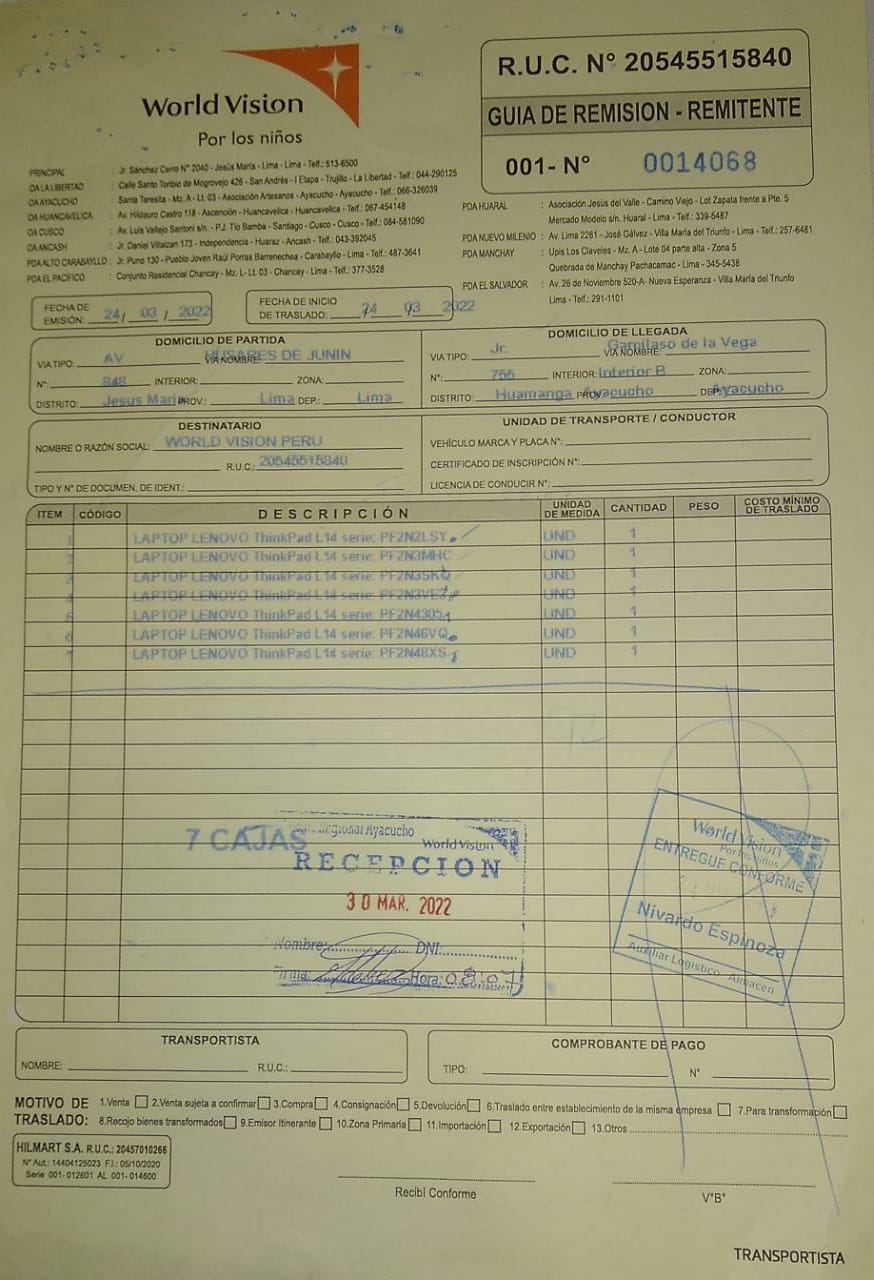 World Vision
Por los niños
R.U.C. N° 20545515840
GUIA DE REMISION - REMITENTE
001- N° 0014068
PRINCIPAL : Jr. Sánchez Cerro N° 2040 - Jesús María - Lima - Lima - Telf.: 513-6500
OA LA LIBERTAD : Calle Santo Toribio de Mogrovejo 426 - San Andrés - I Etapa - Trujillo - La Libertad - Telf.: 044-290125
OA AYACUCHO : Santa Teresita - Mz. A - Lt. 03 - Asociación Artesanos - Ayacucho - Ayacucho - Telf.: 066-326039
OA HUANCAVELICA : Av. Hildauro Castro 118 - Ascención - Huancavelica - Huancavelica - Telf.: 067-454148
OA CUSCO : Av. Luis Vallejo Santoni s/n. - P.J. Tío Bamba - Santiago - Cusco - Cusco - Telf.: 084-581090
OA ANCASH : Jr. Daniel Villaizan 173 - Independencia - Huaraz - Ancash - Telf.: 043-392045
PDA ALTO CARABAYLLO : Jr. Puno 130 - Pueblo Joven Raúl Porras Barrenechea - Carabayllo - Lima - Telf.: 487-3641
PDA EL PACIFICO : Conjunto Residencial Chancay - Mz. L- Lt. 03 - Chancay - Lima - Telf.: 377-3528
PDA HUARAL : Asociación Jesús del Valle - Camino Viejo - Lot Zapata frente a Pte. 5
Mercado Modelo s/n. Huaral - Lima - Telf.: 339-5487
PDA NUEVO MILENIO : Av. Lima 2261 - José Gálvez - Villa María del Triunfo - Lima - Telf.: 257-6481
PDA MANCHAY : Upis Los Claveles - Mz. A - Lote 04 parte alta - Zona 5
Quebrada de Manchay Pachacamac - Lima - 345-5438
PDA EL SALVADOR : Av. 26 de Noviembre 520-A- Nueva Esperanza - Villa María del Triunfo
Lima - Telf.: 291-1101
FECHA DE EMISIÓN: 24/ 03 / 2022
FECHA DE INICIO DE TRASLADO: 24 03 2022
DOMICILIO DE PARTIDA
VIA TIPO: AV VIA NOMBRE: HUSARES DE JUNIN
N°: 848 INTERIOR: ZONA:
DISTRITO: Jesus Maria PROV.: Lima DEP.: Lima
DOMICILIO DE LLEGADA
VIA TIPO: Jr. VIA NOMBRE: Garcilaso de la Vega
N°: 755 INTERIOR: Interior B ZONA:
DISTRITO: Huamanga PROV.: Ayacucho DEP.: Ayacucho
DESTINATARIO
NOMBRE O RAZÓN SOCIAL: WORLD VISION PERU
R.U.C.: 20545515840
TIPO Y N° DE DOCUMEN. DE IDENT.:
UNIDAD DE TRANSPORTE / CONDUCTOR
VEHÍCULO MARCA Y PLACA N°:
CERTIFICADO DE INSCRIPCIÓN N°:
LICENCIA DE CONDUCIR N°:
ITEM CÓDIGO DESCRIPCIÓN UNIDAD DE MEDIDA CANTIDAD PESO COSTO MÍNIMO DE TRASLADO
1 LAPTOP LENOVO ThinkPad L14 serie: PF2N2LSY UND 1
2 LAPTOP LENOVO ThinkPad L14 serie: PF2N3MHC UND 1
3 LAPTOP LENOVO ThinkPad L14 serie: PF2N3SKQ UND 1
4 LAPTOP LENOVO ThinkPad L14 serie: UND 1
5 LAPTOP LENOVO ThinkPad L14 serie: PF2N4305 UND 1
6 LAPTOP LENOVO ThinkPad L14 serie: PF2N46VQ UND 1
7 LAPTOP LENOVO ThinkPad L14 serie: PF2N48XS UND 1
7 CAJAS
Regional Ayacucho
World Vision
RECEPCION
30 MAR. 2022
Nombre: DNI:
Firma: Hora: 08:07
World Vision
Por los niños
ENTREGUE CONFORME
Nivardo Espinoza
Auxiliar Logistico Almacen
TRANSPORTISTA
NOMBRE: R.U.C.:
COMPROBANTE DE PAGO
TIPO: N°
MOTIVO DE TRASLADO: 1.Venta 2.Venta sujeta a confirmar 3.Compra 4.Consignación 5.Devolución 6.Traslado entre establecimiento de la misma empresa 7.Para transformación
8.Recojo bienes transformados 9.Emisor Itinerante 10.Zona Primaria 11.Importación 12.Exportación 13.Otros
HILMART S.A. R.U.C.: 20457010266
N° Aut.: 14404125023 F.I.: 05/10/2020
Serie 001- 012601 AL 001- 014600
Recibí Conforme
V°B°
TRANSPORTISTA